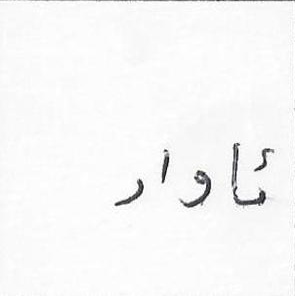 ئاوار